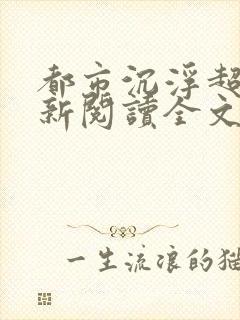 都市沉浮超
新閱讀全文
一生流浪的猫